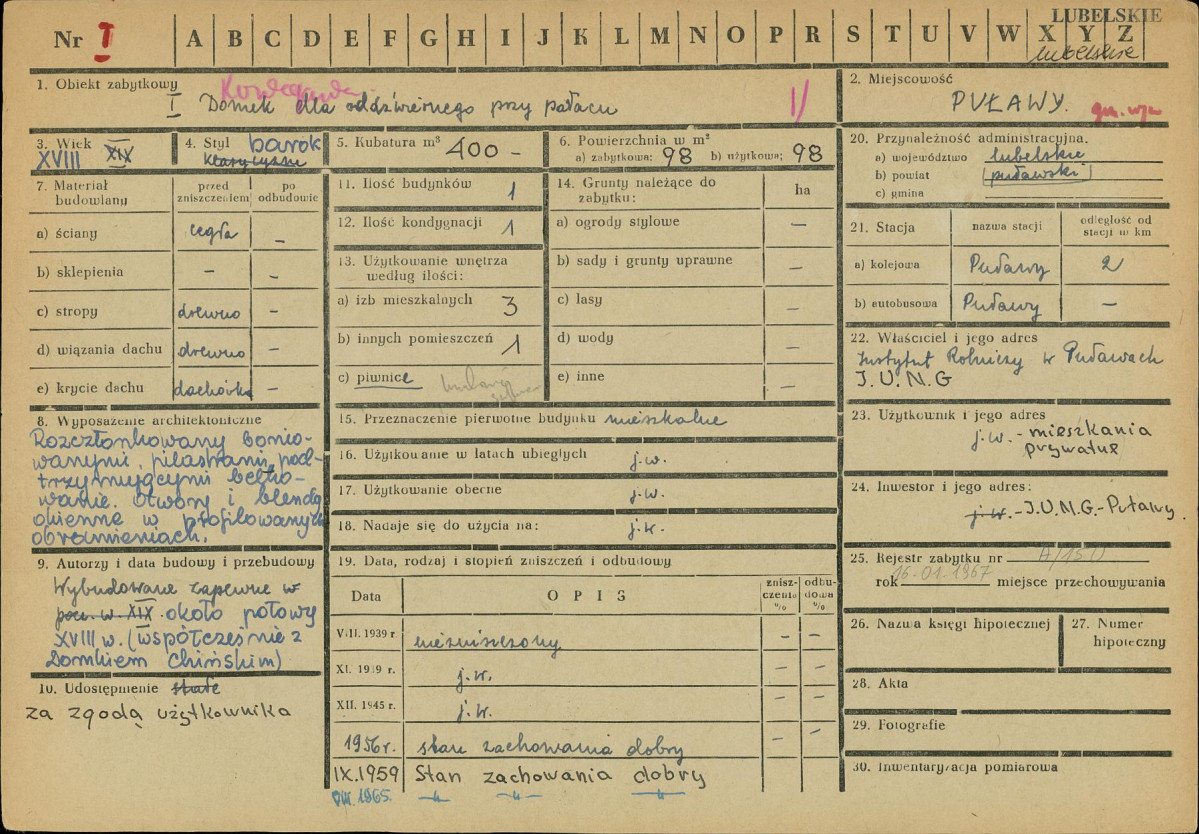 LUBELSKIE
Nr I A B C D E F G H I J K L M N O P R S T U V W X Y Z
lubelskie
1. Obiekt zabytkowy Kordegarda
I Domek dla oddźwiernego przy pałacu I/
2. Miejscowość
PUŁAWY.
3. Wiek XIX
XVIII
4. Styl barok
klasycyzm
5. Kubatura m³ 400 -
6. Powierzchnia w m²
a) zabytkowa: 98 b) użytkowa: 98
7. Materiał budowlany
przed zniszczeniem
po odbudowie
a) ściany cegła -
b) sklepienia - -
c) stropy drewno -
d) wiązania dachu drewno -
e) krycie dachu dachówka -
8. Wyposażenie architektoniczne
Rozczłonkowany bonio-
wanymi, pilastrami, pod-
trzymującymi belko-
wanie. Otwory i blendy
okienne w profilowanych
obramieniach.
9. Autorzy i data budowy i przebudowy
Wybudowane zapewne w
pocz. w. XIX około połowy
XVIII w. (współcześnie z
Domkiem Chińskim)
10. Udostępnienie stałe
za zgodą użytkownika
11. Ilość budynków 1
12. Ilość kondygnacji 1
13. Użytkowanie wnętrza
według ilości:
a) izb mieszkalnych 3
b) innych pomieszczeń 1
c) piwnice
14. Grunty należące do
zabytku: ha
a) ogrody stylowe -
b) sady i grunty uprawne -
c) lasy -
d) wody -
e) inne -
15. Przeznaczenie pierwotne budynku mieszkalne
16. Użytkowanie w latach ubiegłych j.w.
17. Użytkowanie obecne j.w.
18. Nadaje się do użycia na: j.w.
19. Data, rodzaj i stopień zniszczeń i odbudowy
Data OPIS zniszczenia % odbudowa %
VIII. 1939 r. niezniszczony - -
XI. 1939 r. j.w. - -
XII. 1945 r. j.w. - -
1956 r. stan zachowania dobry - -
IX.1959 Stan zachowania dobry
VIII. 1965. -"- -"- -"-
20. Przynależność administracyjna.
a) województwo lubelskie
b) powiat puławski
c) gmina
21. Stacja nazwa stacji odległość od
stacji w km
a) kolejowa Puławy 2
b) autobusowa Puławy -
22. Właściciel i jego adres
Instytut Rolniczy w Puławach
J.U.N.G
23. Użytkownik i jego adres
j.w. - mieszkania
prywatne
24. Inwestor i jego adres:
j.w. - J.U.N.G.- Puławy.
25. Rejestr zabytku nr A/150
rok 16-01-1967 miejsce przechowywania
26. Nazwa księgi hipotecznej
27. Numer
hipoteczny
28. Akta
29. Fotografie
30. Inwentaryzacja pomiarowa